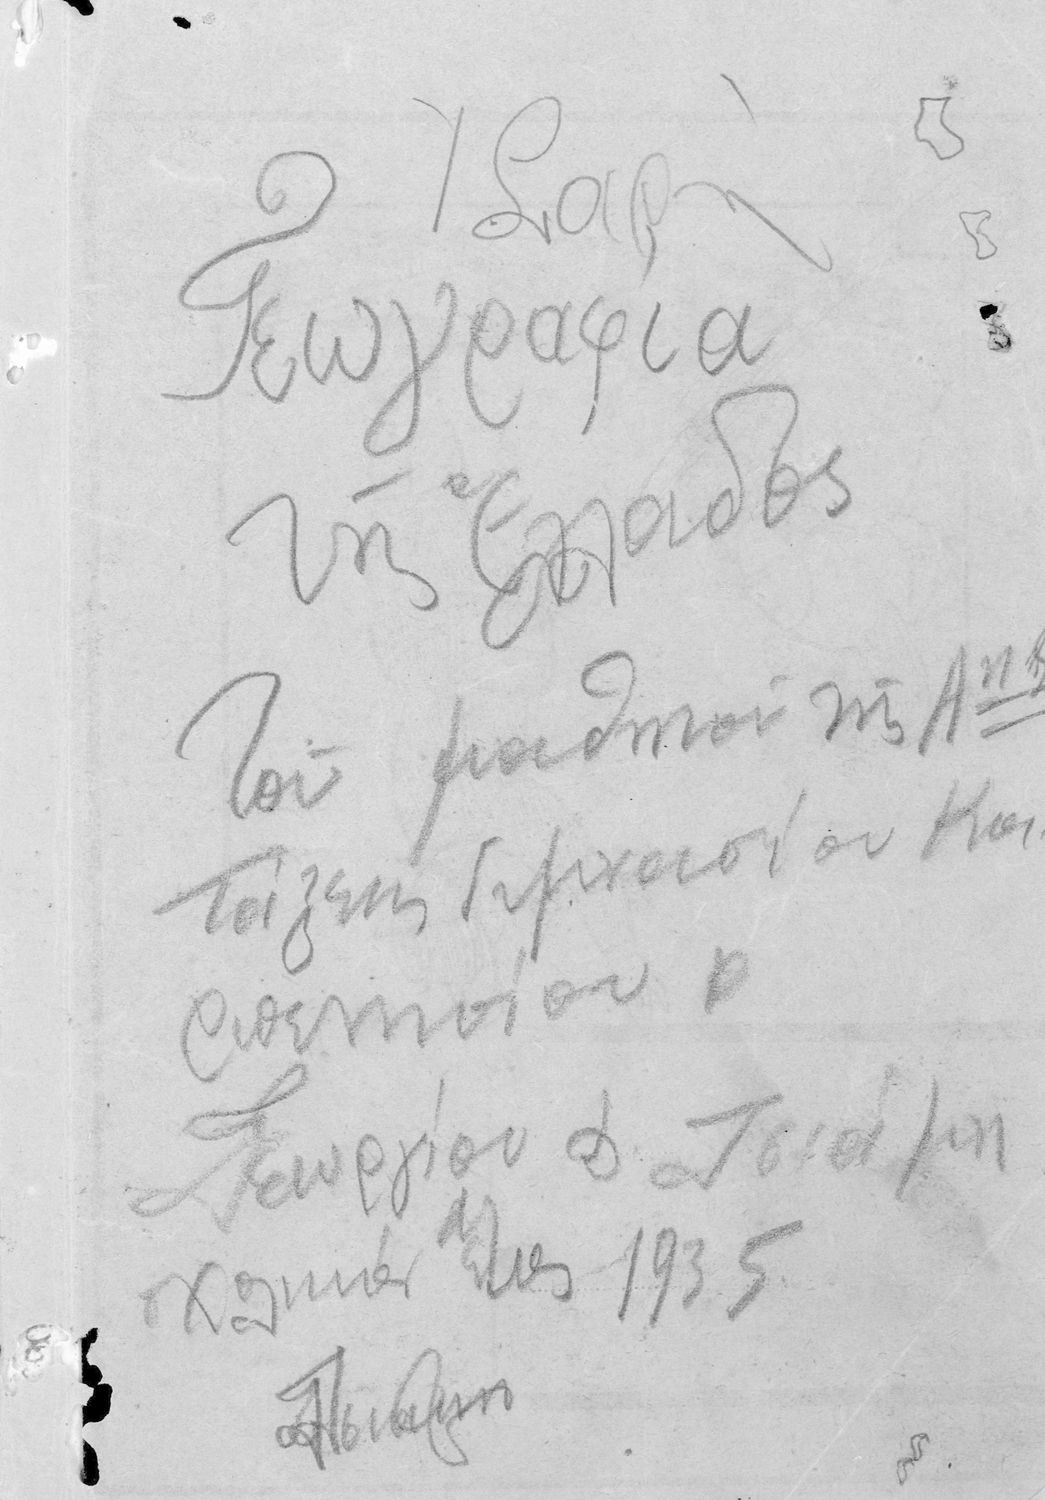 Γεωγραφία
τῆς Ἑλλάδος
Τοῦ μαθητοῦ τῆς Αης
Τάξεως Γυμνασίου Καρ
πενησίου
Γεωργίου Δ. Τσιάμη
σχολικόν ἔτος 1935